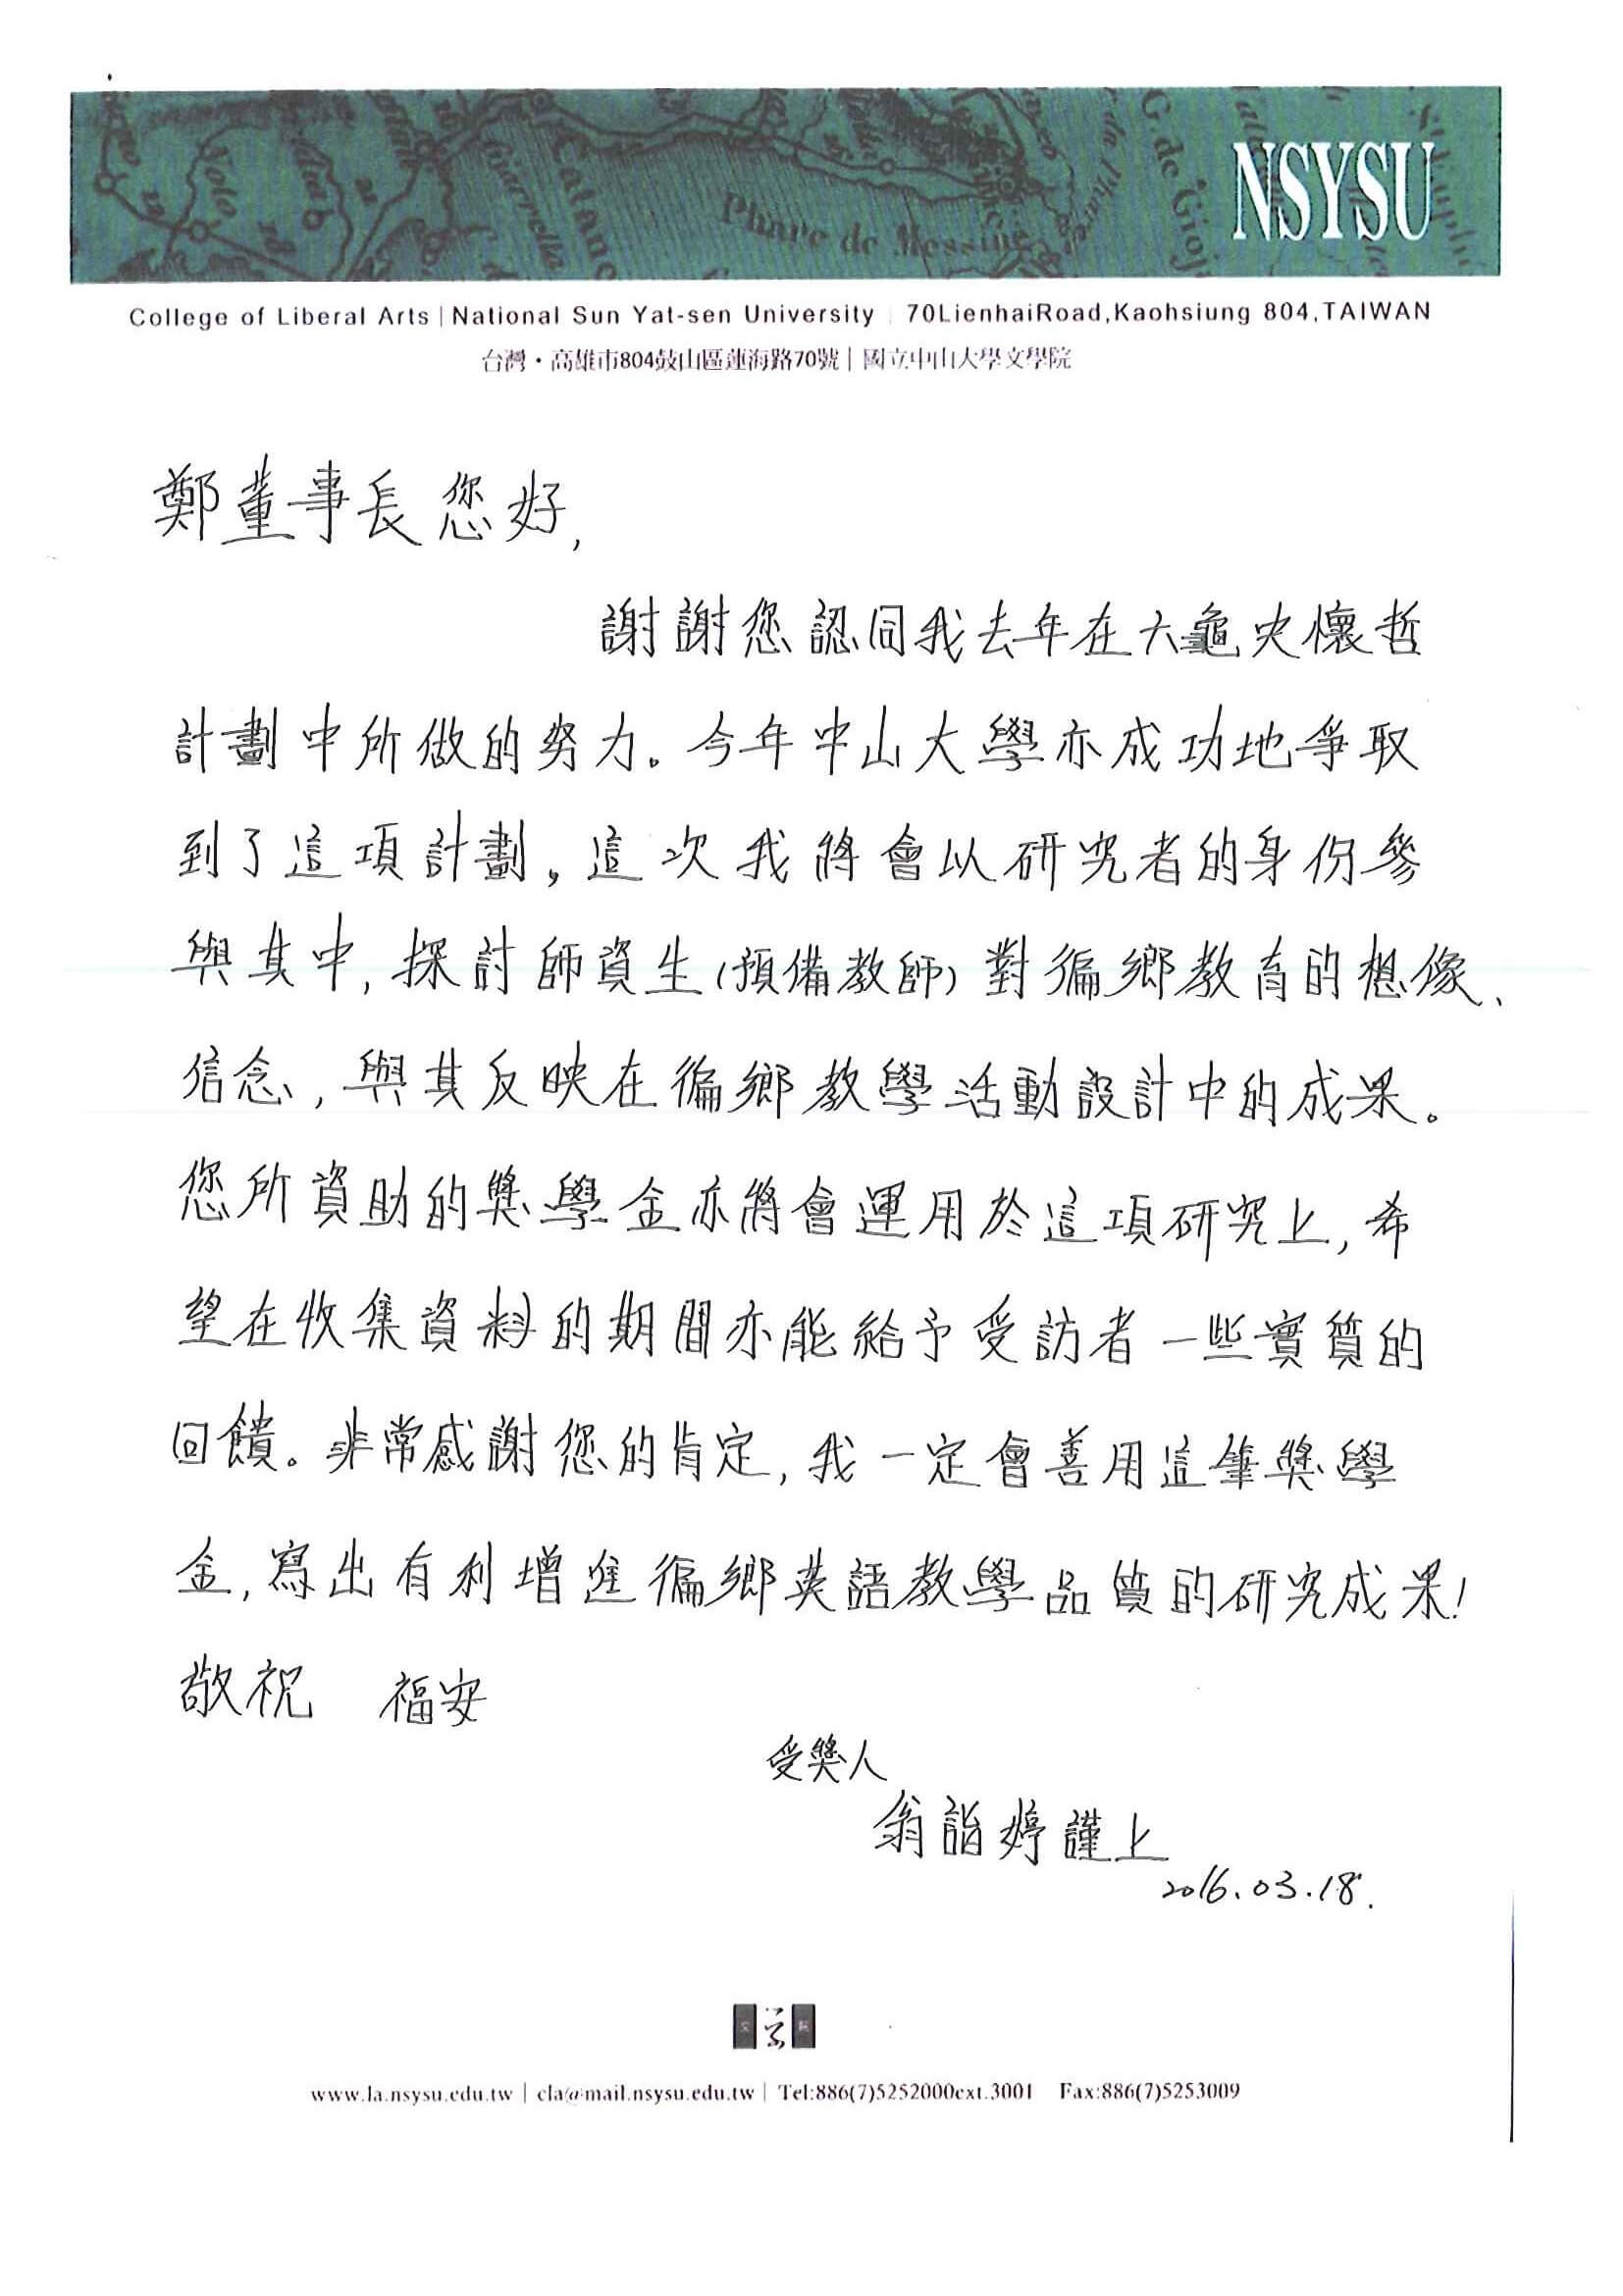 NSYSU
Phare de Messine
College of Liberal Arts | National Sun Yat-sen University | 70LienhaiRoad,Kaohsiung 804,TAIWAN
台灣・高雄市804鼓山區蓮海路70號 | 國立中山大學文學院
鄭董事長您好,
謝謝您認同我去年在六龜史懷哲
計劃中所做的努力。今年中山大學亦成功地爭取
到了這項計劃,這次我將會以研究者的身份參
與其中,探討師資生(預備教師)對徧鄉教育的想像、
信念,與其反映在徧鄉教學活動設計中的成果。
您所資助的獎學金亦將會運用於這項研究上,希
望在收集資料的期間亦能給予受訪者一些實質的
回饋。非常感謝您的肯定,我一定會善用這筆獎學
金,寫出有利增進徧鄉英語教學品質的研究成果!
敬祝 福安
受獎人
翁詣婷謹上
2016.03.18.
www.la.nsysu.edu.tw | cla@mail.nsysu.edu.tw | Tel:886(7)5252000ext.3001 Fax:886(7)5253009